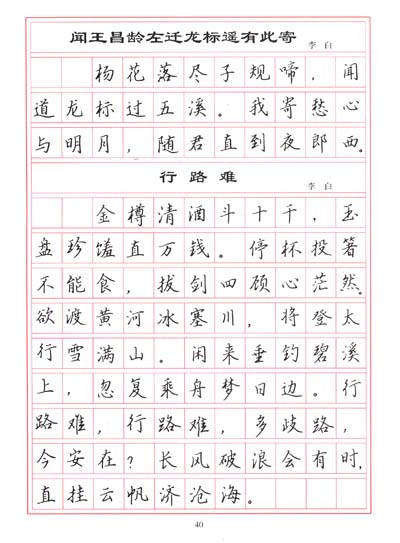 闻王昌龄左迁龙标遥有此寄
李白
杨花落尽子规啼，闻
道龙标过五溪。我寄愁心
与明月，随君直到夜郎西。
行路难
李白
金樽清酒斗十千，玉
盘珍馐直万钱。停杯投箸
不能食，拔剑四顾心茫然。
欲渡黄河冰塞川，将登太
行雪满山。闲来垂钓碧溪
上，忽复乘舟梦日边。行
路难，行路难，多歧路，
今安在？长风破浪会有时，
直挂云帆济沧海。
40